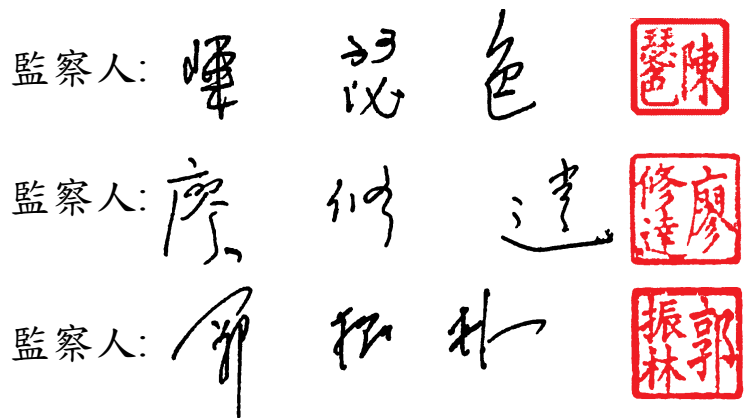 監察人: 陳瑟色 陳瑟色
監察人: 廖修達 廖修達
監察人: 郭振林 郭振林